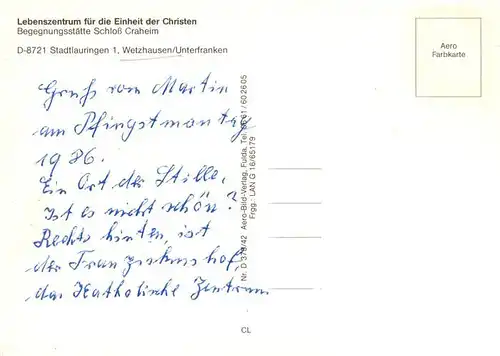 Lebenszentrum für die Einheit der Christen
Begegnungsstätte Schloß Craheim
D-8721 Stadtlauringen 1, Wetzhausen/Unterfranken
Aero
Farbkarte
Gruß vom Martin
am Pfingstmontag
1986.
Ein Ort der Stille,
Ist es nicht schön?
Rechts hinten, ist
der Franziskushof,
das Katholische Zentrum
Aero-Bild-Verlag, Fulda, Tel.
Frgg. LAN G 16/65179
CL